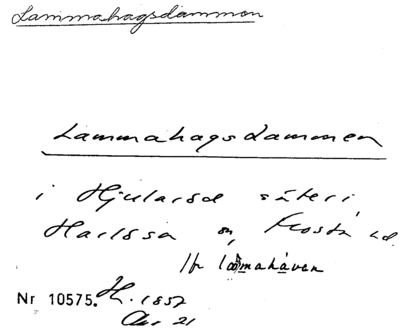 Lammahagsdammen
Lammahagsdammen
i Hjularöd säteri
Harlösa sn, Frosta hd.
Jfr
Nr 10575. H. 1857
21